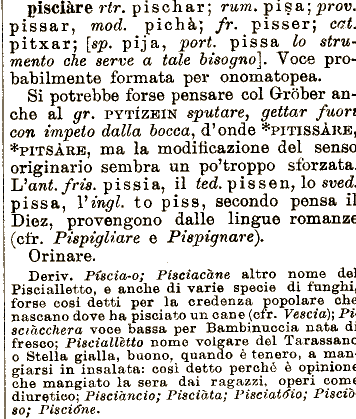 pisciàre rtr. pischar; rum. pișa; prov.
pissar, mod. pichà; fr. pisser; cat.
pitxar; [sp. pija, port. pissa lo stru-
mento che serve a tale bisogno]. Voce pro-
babilmente formata per onomatopea.
Si potrebbe forse pensare col Gröber an-
che al gr. PYTÍZEIN sputare, gettar fuori
con impeto dalla bocca, d'onde *PITISSÀRE,
*PITSÀRE, ma la modificazione del senso
originario sembra un po'troppo sforzata.
L'ant. fris. pissia, il ted. pissen, lo sved.
pissa, l'ingl. to piss, secondo pensa il
Diez, provengono dalle lingue romanze
(cfr. Pispigliare e Pispignare).
Orinare.
Deriv. Píscia-o; Pisciacàne altro nome del
Piscialletto, e anche di varie specie di funghi,
forse cosi detti per la credenza popolare che
nascano dove ha pisciato un cane (cfr. Vescia); Pi-
sciàcchera voce bassa per Bambinuccia nata di
fresco; Pisciallètto nome volgare del Tarassano
o Stella gialla, buono, quando è tenero, a man-
giarsi in insalata: così detto perchè è opinione
che mangiato la sera dai ragazzi, operi come
diuretico; Pisciàncio; Pisciàta; Pisciatóio; Pisció-
so; Piscióne.